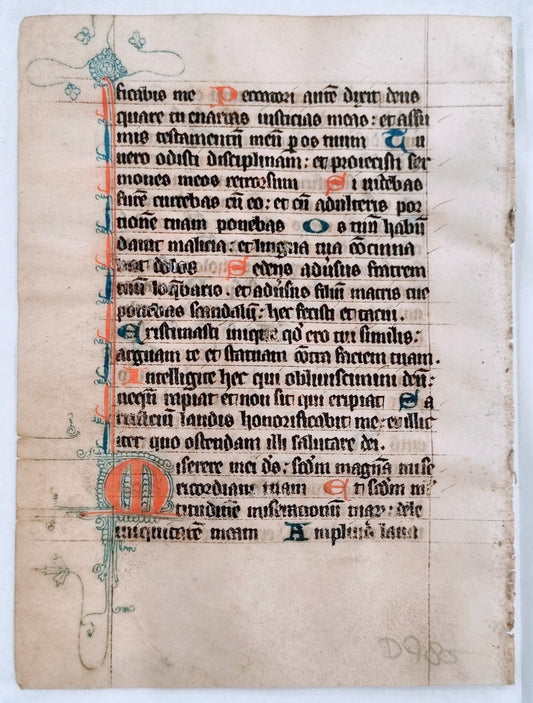 ficabis me Peccatori autē dixit deus
quare tu enarras iusticias meas: et assu
mis testamentum meū p os tuum Tu
uero odisti disciplinam: et proiecisti ser
mones meos retrorsum Si uidebas
furē currebas cū eo: et cū adulteris por
tionē tuam ponebas Os tuū habū
dauit malicia: et lingua tua cōcinna
bat dolos Sedens aduſus fratrem
tuū loq̄baris. et aduſus filiū matris tue
ponebas scandalū: hec fecisti et tacui.
Existimasti inique qd ero tui similis:
arguam te et statuam cōtra faciem tuam.
Intelligite hec qui obliuiscimini deū:
nequū rapiat et non sit qui eripiat Sa
crificiū laudis honorificabit me: et illic
iter quo ostendam illi salutare dei.
Miserere mei ds: scdm magnā mise
ricordiam tuam Et scdm m
titudinē miserationum tuar: dele
iniquitatē meam Amplius laua
D980